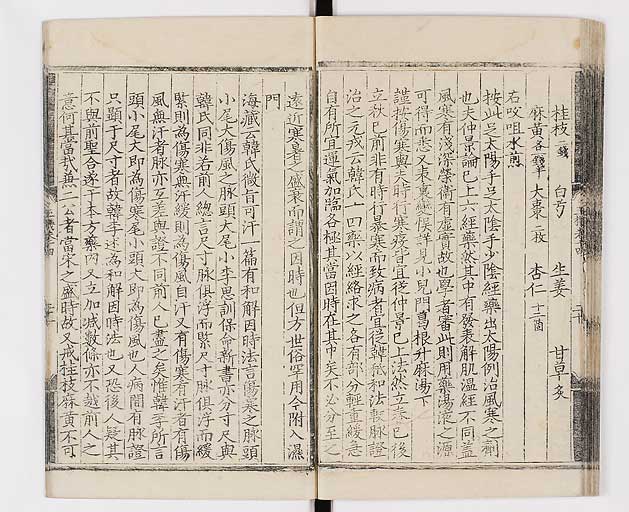 桂枝一錢 白芍 生姜 甘草炙
麻黄各錢半 大棗二枚 杏仁十二箇
右㕮咀水煎
按此足太陽手足太陰手少陰經藥出太陽例治風寒之劑
也夫仲景論已上六經藥然其中有發表解肌溫經不同蓋
風寒有淺深榮衛有虛實故也學者審此則用藥湯液之源
可得而悉又表裏變候詳見小兒門葛根升麻湯下
謹按傷寒與夫時行寒疫皆宜從仲景已上法然立春已後
立秋已前非有時行暴寒而致病者宜從韓祗和法按脉證
治之元戎云韓氏十四藥以經絡求之各有部分輕重緩急
自有所宜運氣加臨各極其當因時在其中矣不必分至之
遠近寒暑之盛衰而謂之因時也但方世俗罕用今附入濕
門
海藏云韓氏微旨可汗一篇有和解因時法言傷寒之脉頭
小尾大傷風之脉頭大尾小李思訓保命新書亦分寸尺與
韓氏同非若前人總言尺寸脉俱浮而緊尺寸脉俱浮而緩
緊則為傷寒無汗緩則為傷風自汗又有傷寒有汗者有傷
風無汗者脉亦互差與證不同前人已盡之矣惟韓李所言
頭小尾大即為傷寒尾小頭大即為傷風也人病間有脉證
只顯于尺寸者故韓李述為和解因時法也又恐後人疑其
不與前聖合遂于本方藥内又立加減數條亦不越前人之
意何其當哉兼二公者當宋之盛時故又戒桂枝麻黄不可